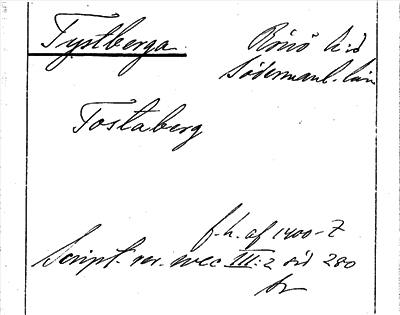 Tystberga Rönö h:d
Södermanl. län
Tostaberg
f.h. af 1400-t
Script. rer. svec III:2 sid 280